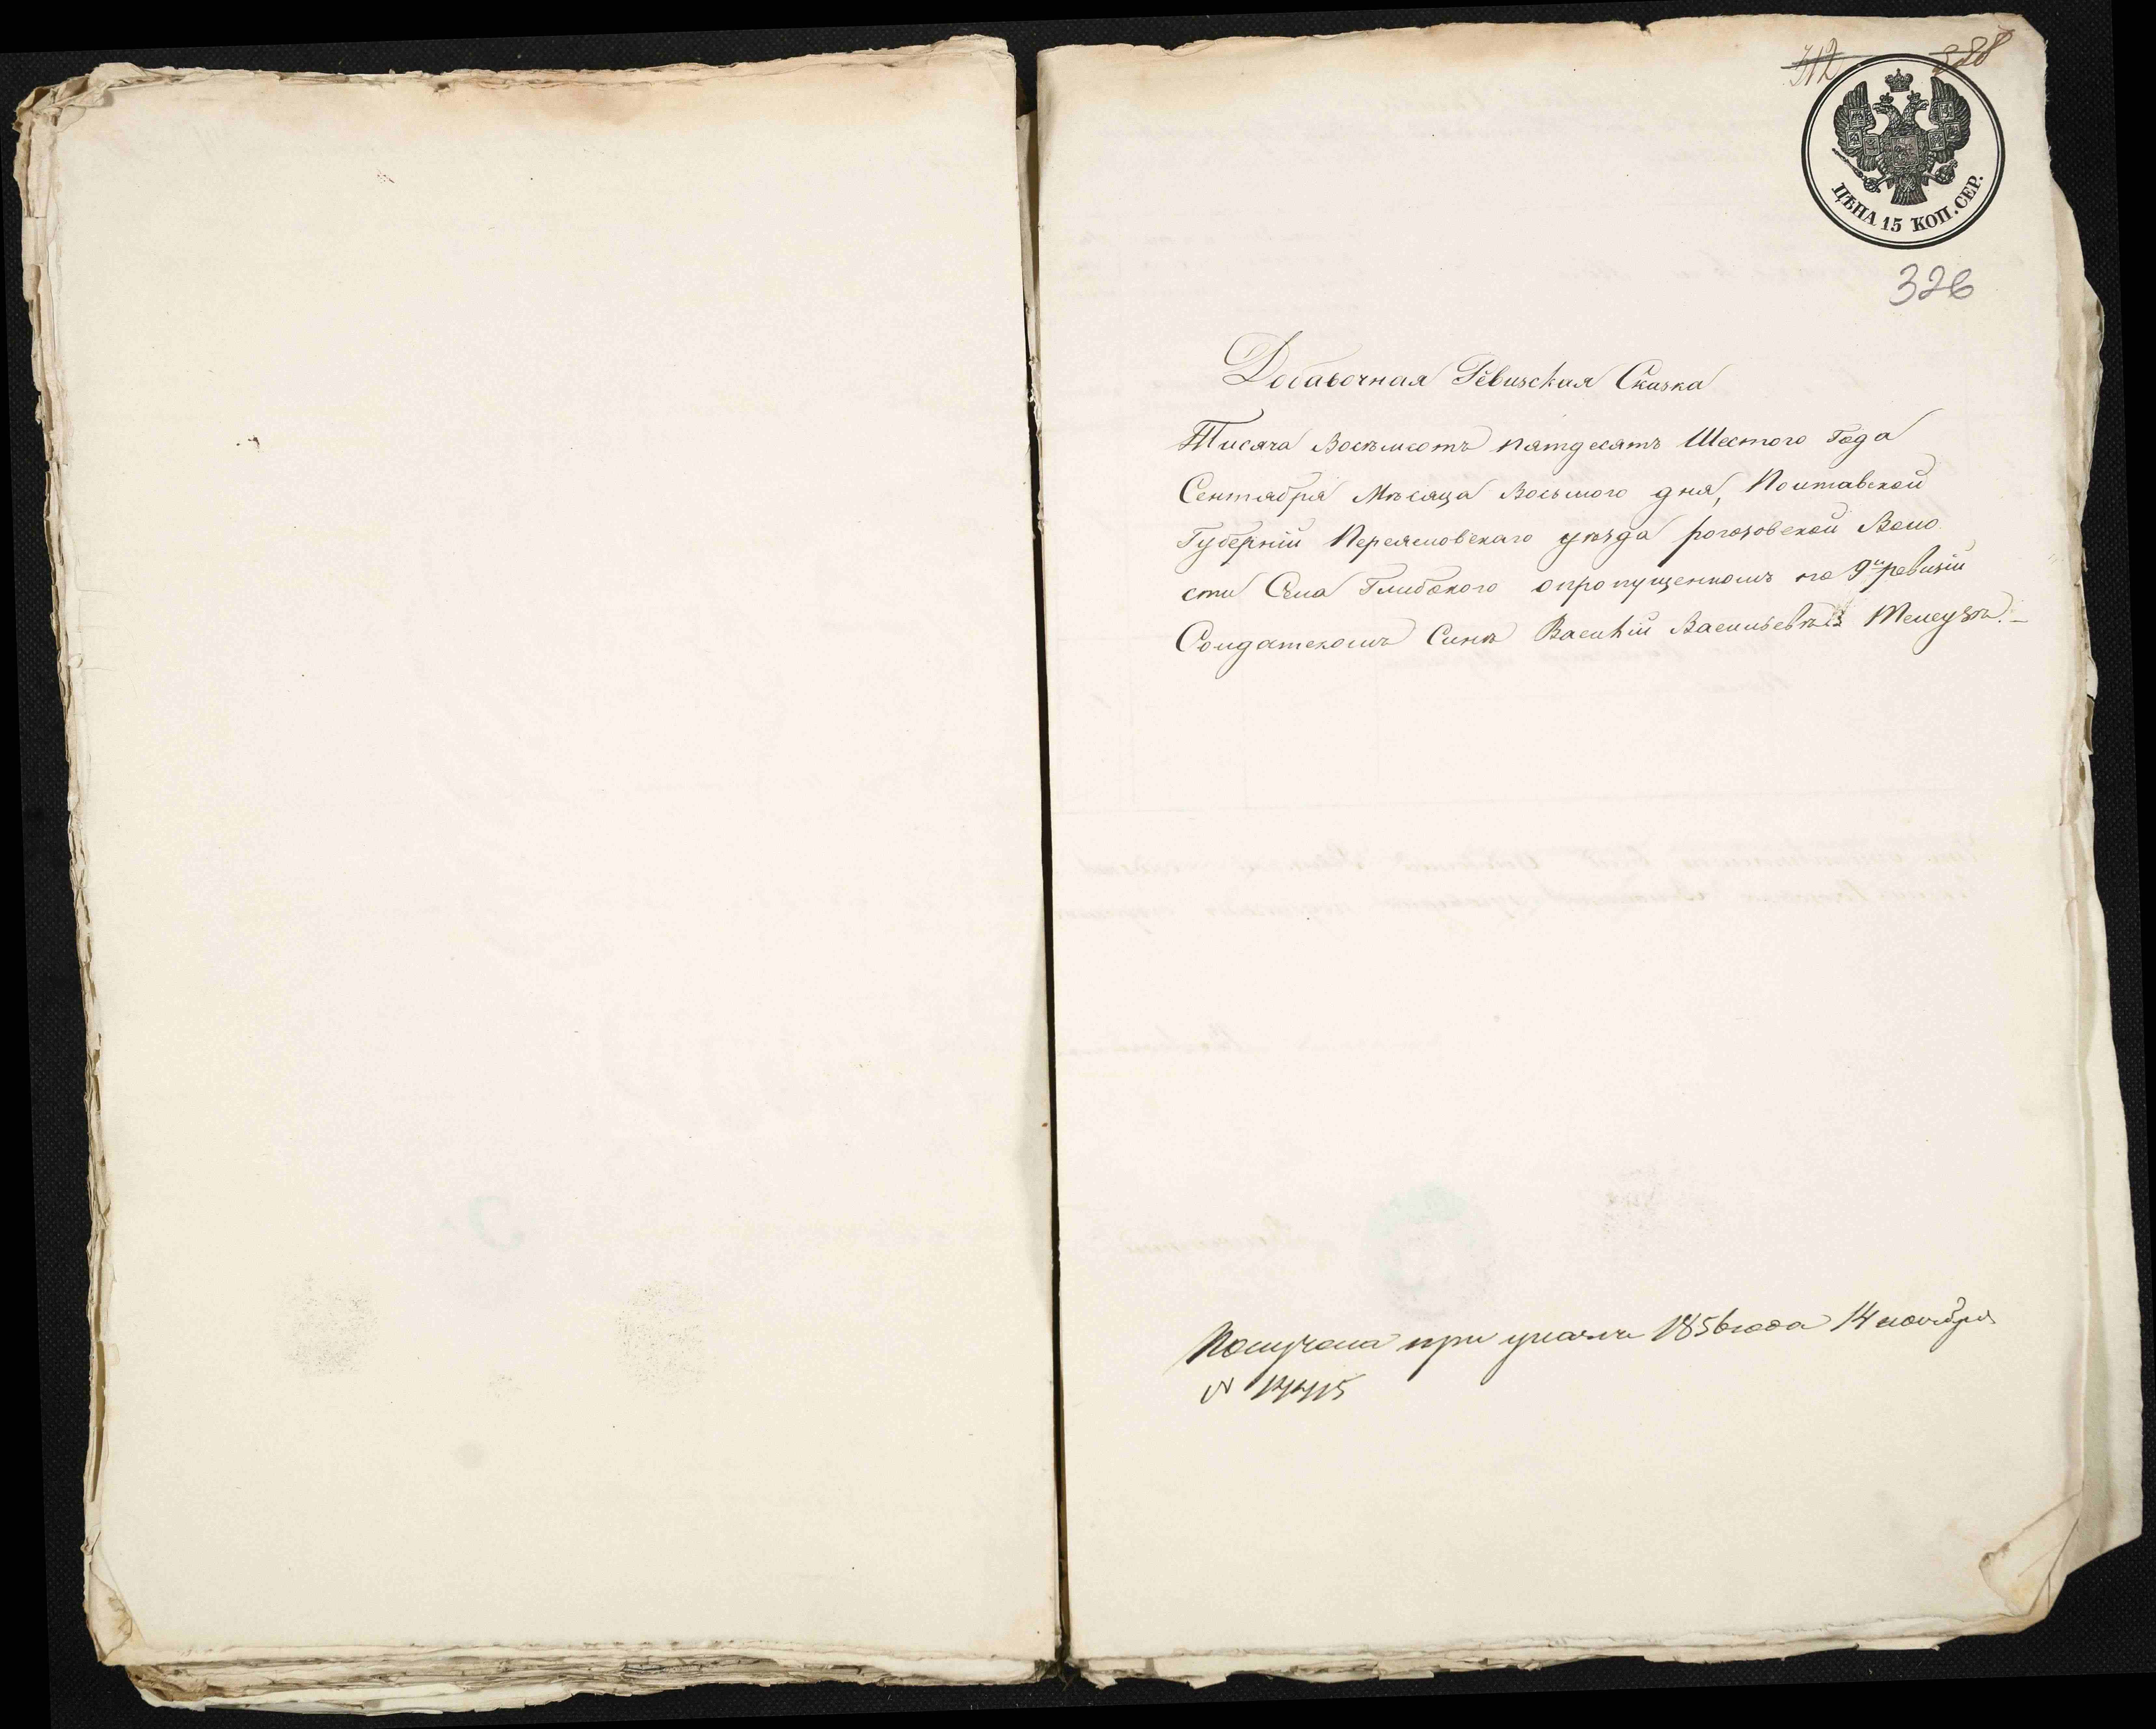 312 328
ЦѢНА 15 КОП. СЕР.
326
Добавочная Ревизская Сказка
Тисяча Восѣмсотъ пятдесятъ Шестого Года
Сентября Мѣсяца Восьмого дня, Полтавской
Губерніи Переясловскаго уѣзда рогозовской Воло
сти Села Глибокого опропущенномъ по 9й ревизіи
Солдатскомъ Синѣ Василій Васильевѣ
Получена при указѣ 1856 года 14 ноября
№